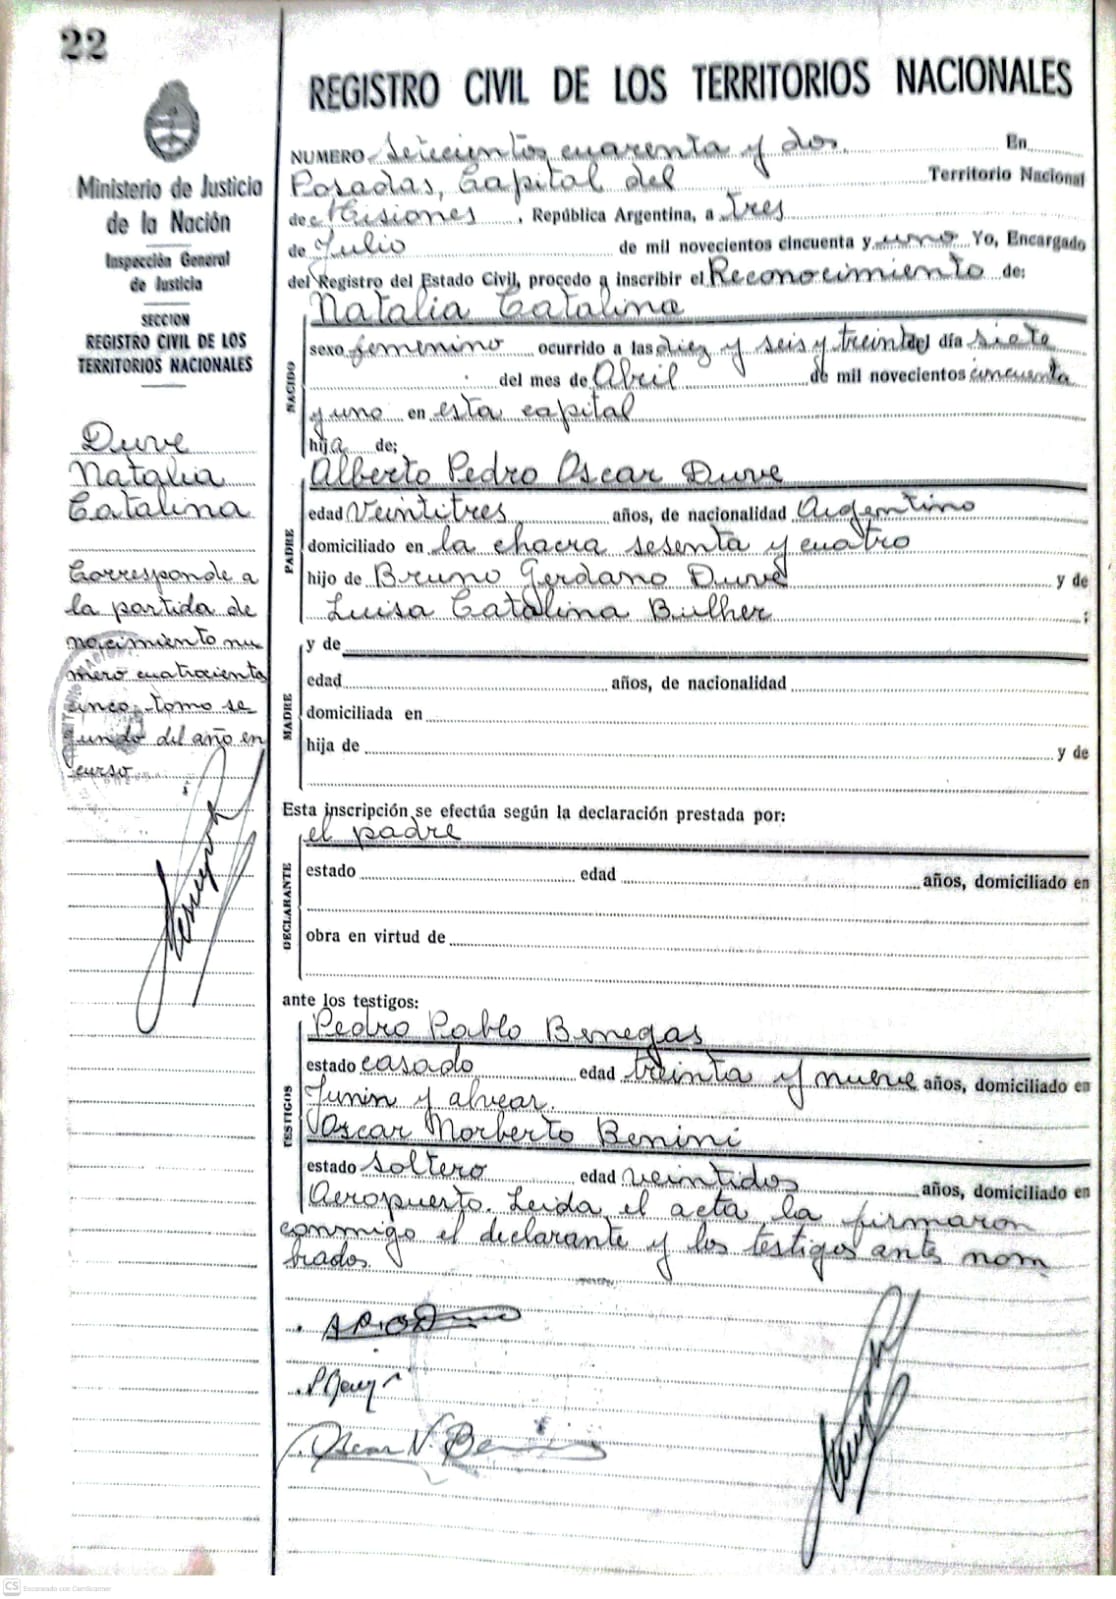 22
Ministerio de Justicia
de la Nación
Inspección General
de Justicia
SECCION
REGISTRO CIVIL DE LOS
TERRITORIOS NACIONALES
Duve
Natalia
Catalina
Corresponde a
la partida de
nacimiento nu
mero cuatrocientos
cinco tomo se
gundo del año en
curso
REGISTRO CIVIL DE LOS TERRITORIOS NACIONALES
NUMERO setecientos cuarenta y dos. En
Posadas, Capital del Territorio Nacional
de Misiones, República Argentina, a tres
de Julio de mil novecientos cincuenta y uno Yo, Encargado
del Registro del Estado Civil, procedo a inscribir el Reconocimiento de:
NACIDO
Natalia Catalina
sexo femenino ocurrido a las diez y seis y treinta del día siete
del mes de Abril de mil novecientos cincuenta
y uno en esta capital
hija de;
PADRE
Alberto Pedro Oscar Duve
edad Veintitres años, de nacionalidad Argentino
domiciliado en la chacra sesenta y cuatro
hijo de Bruno Gerdano Duve y de
Luisa Catalina Bulher ;
MADRE
y de
edad años, de nacionalidad
domiciliada en
hija de y de
Esta inscripción se efectúa según la declaración prestada por:
DECLARANTE
el padre
estado edad años, domiciliado en
obra en virtud de
ante los testigos:
TESTIGOS
Pedro Pablo Benegas
estado casado edad treinta y nueve años, domiciliado en
Junin y alvear.
Oscar Norberto Benini
estado soltero edad veintidos años, domiciliado en
Aeropuerto. Leida el acta la firmaron
conmigo el declarante y los testigos antes nom
brados.
Oscar N. Benini
CS Escaneado con CamScanner